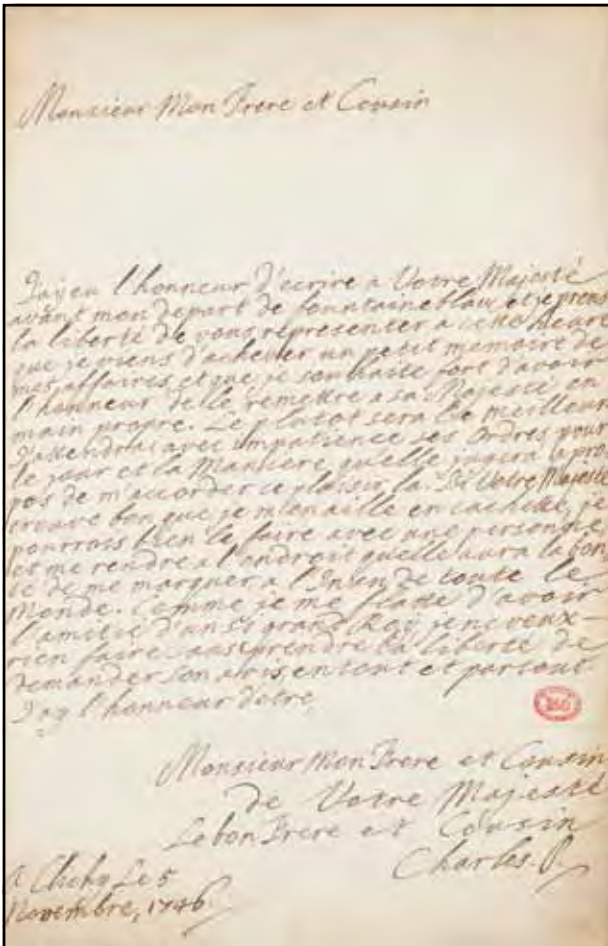 Monsieur Mon Frere et Cousin
J'ay eu l'honneur d'ecrire a Votre Majesté
avant mon depart de fountaineblau et je prens
la liberté de vous representer a cette heure
que je viens d'achever un petit memoire de
mes affaires, et que je souhaite fort d'avoir
l'honneur de le remettre a sa Majesté en
main propre. Le plutot sera le meilleur
J'attendrai avec impatience ses Ordres pour
le jour et la Maniere quelle jugera apro
pos de m'accorder ce plaisir la. Si Votre Majesté
trouve bon que je m'en aille en cachette, je
pourrois bien le faire avec une personne,
et me rendre a l'endroit quelle aura la bon
té de me marquer a l'Insu de toute le
Monde. Comme je me flatte d'avoir
l'amitié d'un si grand Roy je ne veux
rien faire sans prendre la liberté de
demander son avis, en tout et partout.
J'ay l'honneur detre,
Monsieur Mon Frere et Cousin
de Votre Majesté
Le bon Frere et Cousin
Charles. P.
A Clichy Le 5
Novembre, 1746.